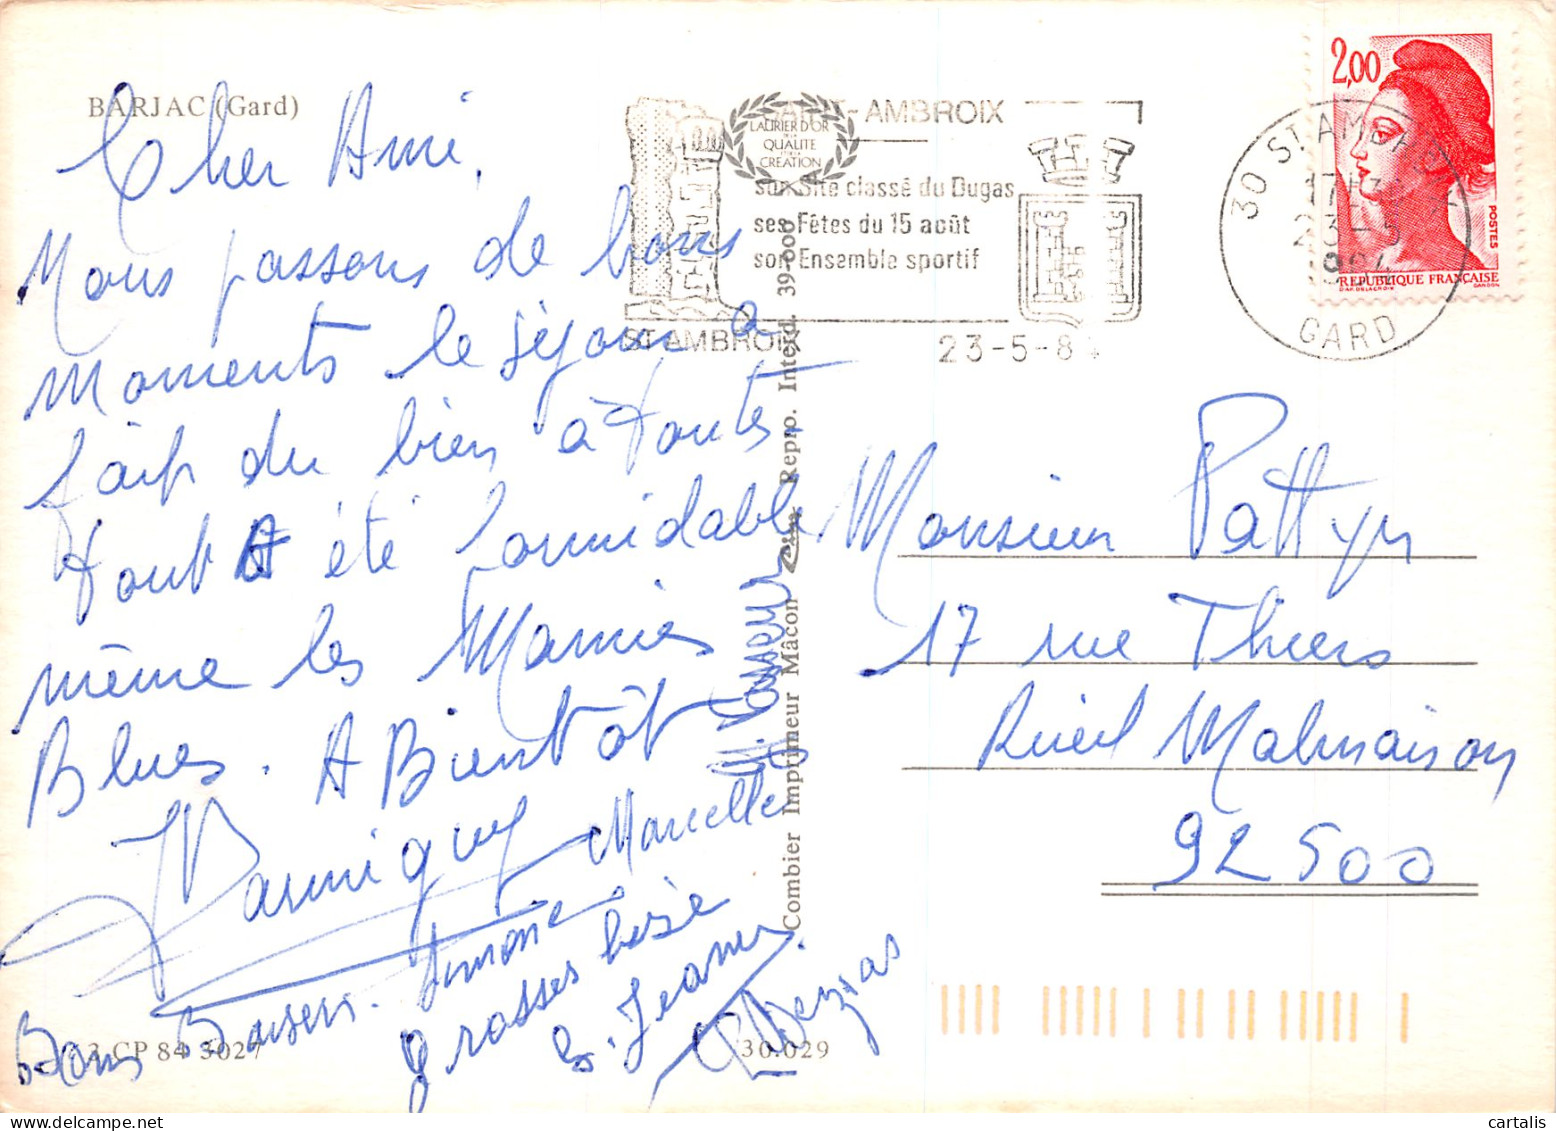 BARJAC (Gard)
Cher Ami,
Nous passons de bons
moments le séjour a
fait du bien à toutes
tout A été formidable
même les Mamies
Blues. A Bientôt
Marcelle
Bons Baisers. Simone
grosses bise
S. Jeanne
3 CP 84 3027
30.029
Combier Imprimeur Mâcon
Repro. Interd. 39-000
LAURIER D'OR
DE LA
QUALITE
CREATION
SAINT-AMBROIX
son Site classé du Dugas
ses Fêtes du 15 août
son Ensemble sportif
ST AMBROIX
23-5-84
30 ST AMBROIX
GARD
2,00
POSTES
REPUBLIQUE FRANÇAISE
D'AP. DELACROIX
GANDON
Monsieur Pattyn
17 rue Thiers
Rueil Malmaison
92500
cartalis